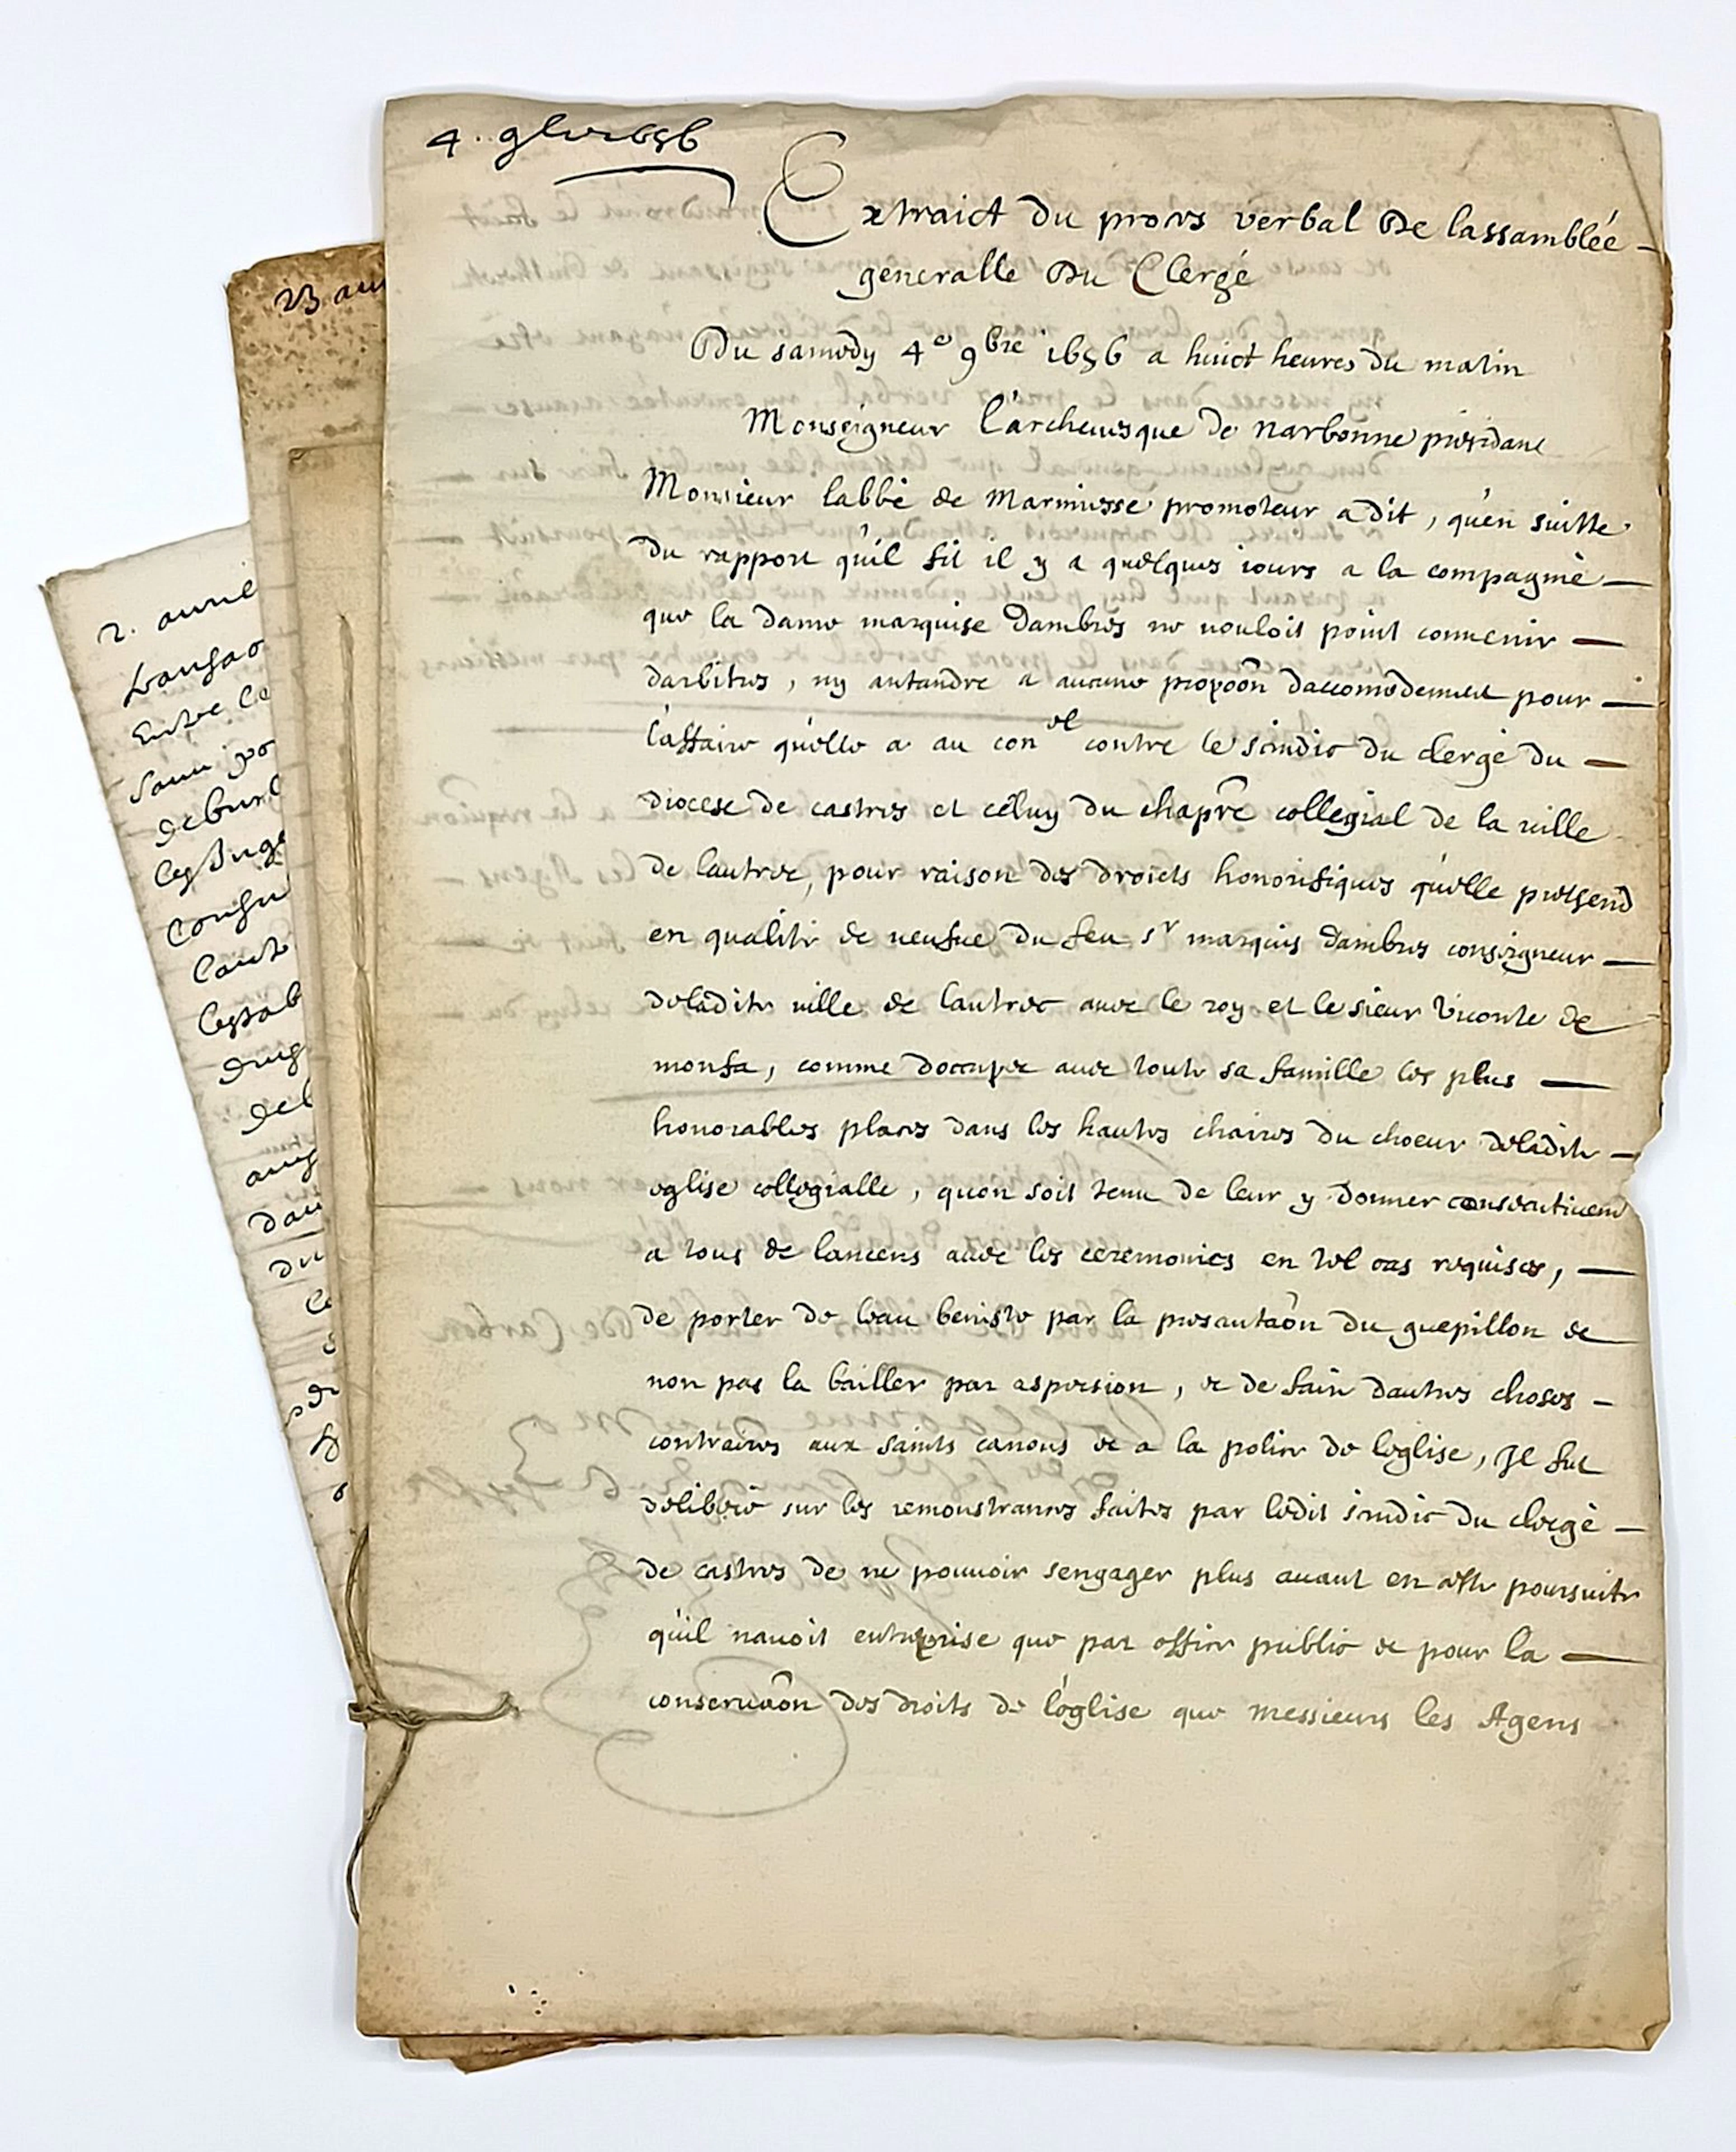 4. 9bre 1656
Extraict du proces verbal De lassamblée
generalle Du Clergé
Du samedy 4e 9bre 1656 a huict heures du matin
Monseigneur l'archeuesque de narbonne presidant
Monsieur labbé de Marmiesse promoteur a dit, qu'en suitte
du rapport qu'il fit il y a quelques iours a la compagnie
que la dame marquise dambres ne vouloit point conuenir
darbitres, ny entandre a aucune propoôn daccomodement pour
l'affaire qu'elle a au conel contre le sindic du clergé du
diocese de castres et celuy du chapre collegial de la ville
de lautrec, pour raison des droicts honorifiques qu'elle pretend
en qualité de veufue du feu sr marquis dambres conseigneur
de ladite ville de lautrec auec le roy et le sieur Viconte de
monfa, comme doccuper auec toute sa famille les plus
honorables places dans les hautes chaires du choeur de ladite
eglise collegialle, quon soit tenu de leur y donner consecutiuemt
a tous de lancens auec les ceremonies en tel cas requises,
de porter de leau beniste par la presantaôn du guepillon et
non pas la bailler par aspersion, et de faire dautres choses
contraires aux saints canons et a la police de leglise, Il fut
deliberé sur les remonstrances faites par ledit sindic du clergé
de castres de ne pouuoir sengager plus auant en cette poursuite
qu'il nauoit entreprise que par office public et pour la
conseruaôn des droits de l'eglise que messieurs les Agens
23 au
2. auril
Entre le